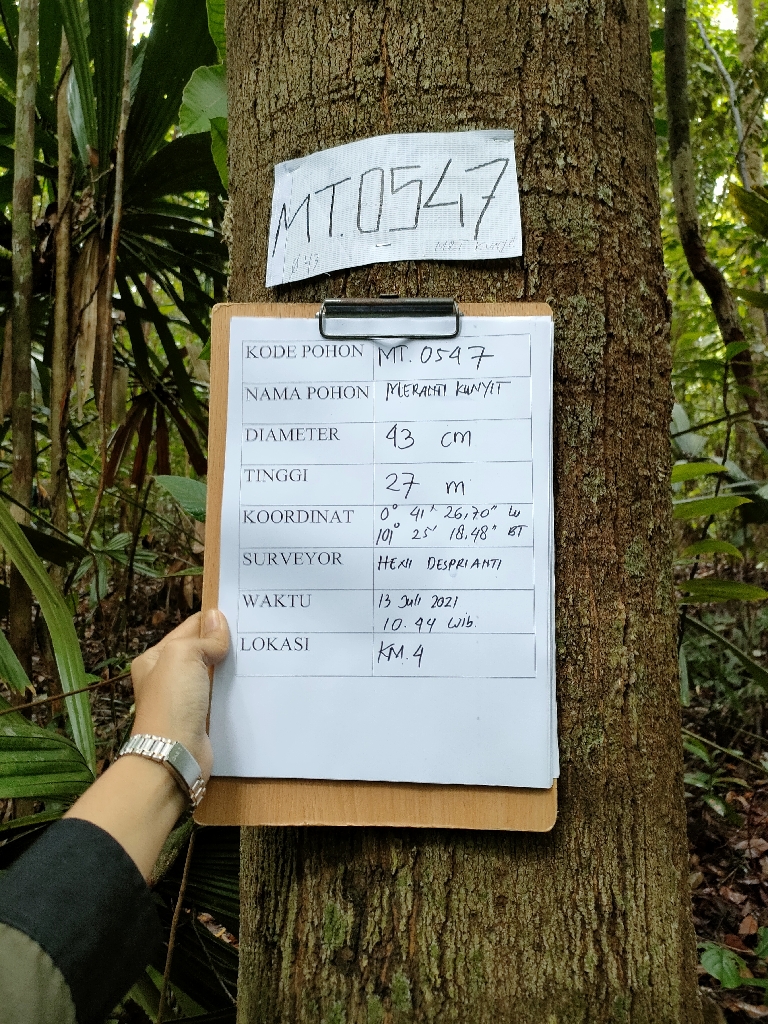 MT.0547
KODE POHON MT. 0547
NAMA POHON MERANTI KUNYIT
DIAMETER 43 cm
TINGGI 27 m
KOORDINAT 0° 41' 26,70" LU
101° 25' 18,48" BT
SURVEYOR HENI DESPRIANTI
WAKTU 13 Juli 2021
10.44 wib.
LOKASI KM.4